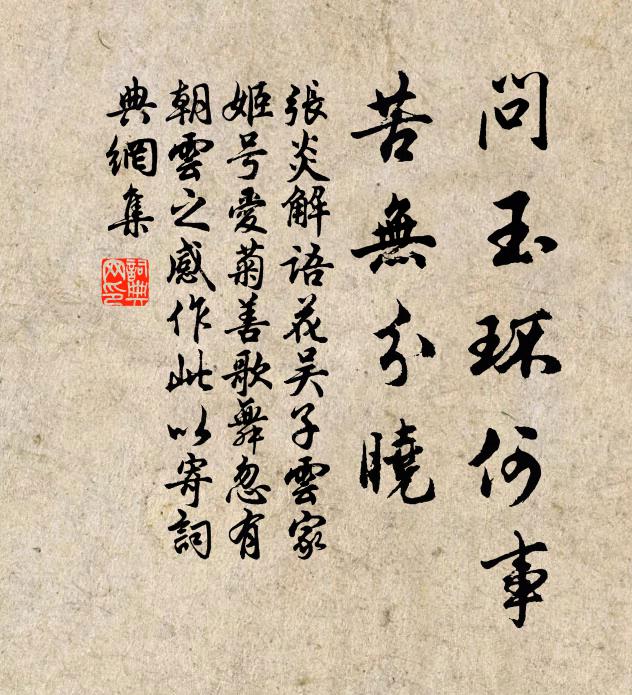 問玉環何事
苦無分曉
張炎解語花吴子雲家
姬号愛菊善歌舞忽有
朝雲之感作此以寄詞
典網集
詞典
网印